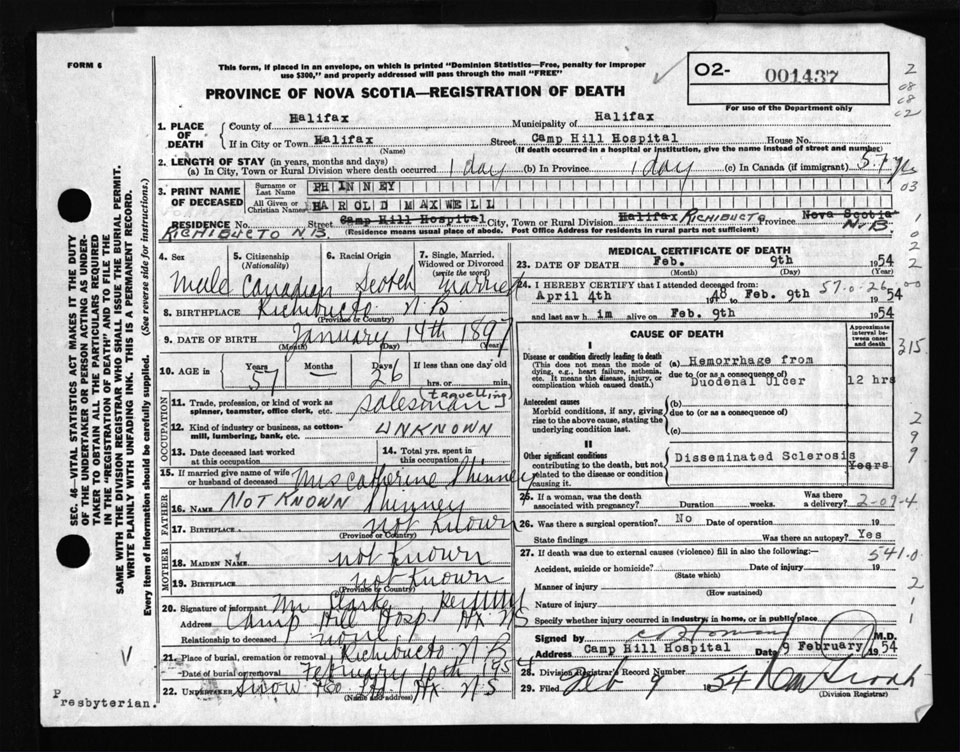 FORM 6
This form, if placed in an envelope, on which is printed "Dominion Statistics—Free, penalty for improper
use $300," and properly addressed will pass through the mail "FREE"
PROVINCE OF NOVA SCOTIA—REGISTRATION OF DEATH
O2- 001437
For use of the Department only
2
08
08
02
1. PLACE OF DEATH
County of Halifax Municipality of Halifax
If in City or Town Halifax Street Camp Hill Hospital House No.
(Name) (If death occurred in a hospital or institution, give the name instead of street and number)
2. LENGTH OF STAY (in years, months and days)
(a) In City, Town or Rural Division where death occurred 1 day (b) In Province 1 day (c) In Canada (if immigrant) 57 yrs
03
3. PRINT NAME OF DECEASED
Surname or Last Name PHINNEY
All Given or Christian Names HAROLD MAXWELL
RESIDENCE No. Street Camp Hill Hospital City, Town or Rural Division Halifax RICHIBUCTO Province Nova Scotia N.B.
RICHIBUCTO N.B. (Residence means usual place of abode. Post Office Address for residents in rural parts not sufficient)
4. Sex Male
5. Citizenship (Nationality) Canadian
6. Racial Origin Scotch
7. Single, Married, Widowed or Divorced (write the word) Married
8. BIRTHPLACE Richibucto N B
(Province or Country)
9. DATE OF BIRTH January 14th 1897
(Month) (Day) (Year)
10. AGE in Years 57 Months — Days 26 If less than one day old
hrs. or min.
OCCUPATION
11. Trade, profession, or kind of work as spinner, teamster, office clerk, etc. travelling salesman
12. Kind of industry or business, as cotton-mill, lumbering, bank, etc. UNKNOWN
13. Date deceased last worked at this occupation
14. Total yrs. spent in this occupation
15. If married give name of wife or husband of deceased Mrs Catherine Phinney
FATHER
16. Name NOT KNOWN Phinney
17. Birthplace not known
(Province or Country)
MOTHER
18. Maiden Name not known
19. Birthplace not known
(Province or Country)
20. Signature of informant Mr Clarke
Address Camp Hill Hosp. Hx N S
Relationship to deceased none
21. Place of burial, cremation or removal Richibucto N B
Date of burial or removal February 10th 1954
22. Undertaker Snow & Co Ltd. Hx N S
(Name and address)
Presbyterian.
MEDICAL CERTIFICATE OF DEATH
23. DATE OF DEATH Feb. 9th 1954
(Month) (Day) (Year)
24. I HEREBY CERTIFY that I attended deceased from: 57-0-26-00
April 4th 1948 Feb. 9th 1954
and last saw him alive on Feb. 9th 1954
CAUSE OF DEATH
Approximate interval between onset and death
I
Disease or condition directly leading to death
(This does not mean the mode of dying, e.g., heart failure, asthenia, etc. It means the disease, injury, or complication which caused death.)
(a) Hemorrhage from
due to (or as a consequence of)
Duodenal Ulcer 12 hrs
315
Antecedent causes
Morbid conditions, if any, giving rise to the above cause, stating the underlying condition last.
(b)
due to (or as a consequence of)
(c)
II
Other significant conditions
contributing to the death, but not related to the disease or condition causing it.
Disseminated Sclerosis Years
25. If a woman, was the death associated with pregnancy? Duration weeks. Was there a delivery? 2-09-4
26. Was there surgical operation? No Date of operation 19
State findings Was there an autopsy? Yes
27. If death was due to external causes (violence) fill in also the following:— 541.0
Accident, suicide or homicide? Date of injury 19
(State which)
Manner of injury
(How sustained)
Nature of injury
Specify whether injury occurred in industry, in home, or in public place
Signed by M.D.
Address Camp Hill Hospital Date 9 February 1954
28. Division Registrar's Record Number
29. Filed Feb 9 1954
(Division Registrar)
SEC. 46—VITAL STATISTICS ACT MAKES IT THE DUTY
OF THE UNDERTAKER OR PERSON ACTING AS UNDER-
TAKER TO OBTAIN ALL THE PARTICULARS REQUIRED
IN THE "REGISTRATION OF DEATH" AND TO FILE THE
SAME WITH THE DIVISION REGISTRAR WHO SHALL ISSUE THE BURIAL PERMIT.
WRITE PLAINLY WITH UNFADING INK. THIS IS A PERMANENT RECORD.
Every item of information should be carefully supplied. (See reverse side for instructions.)